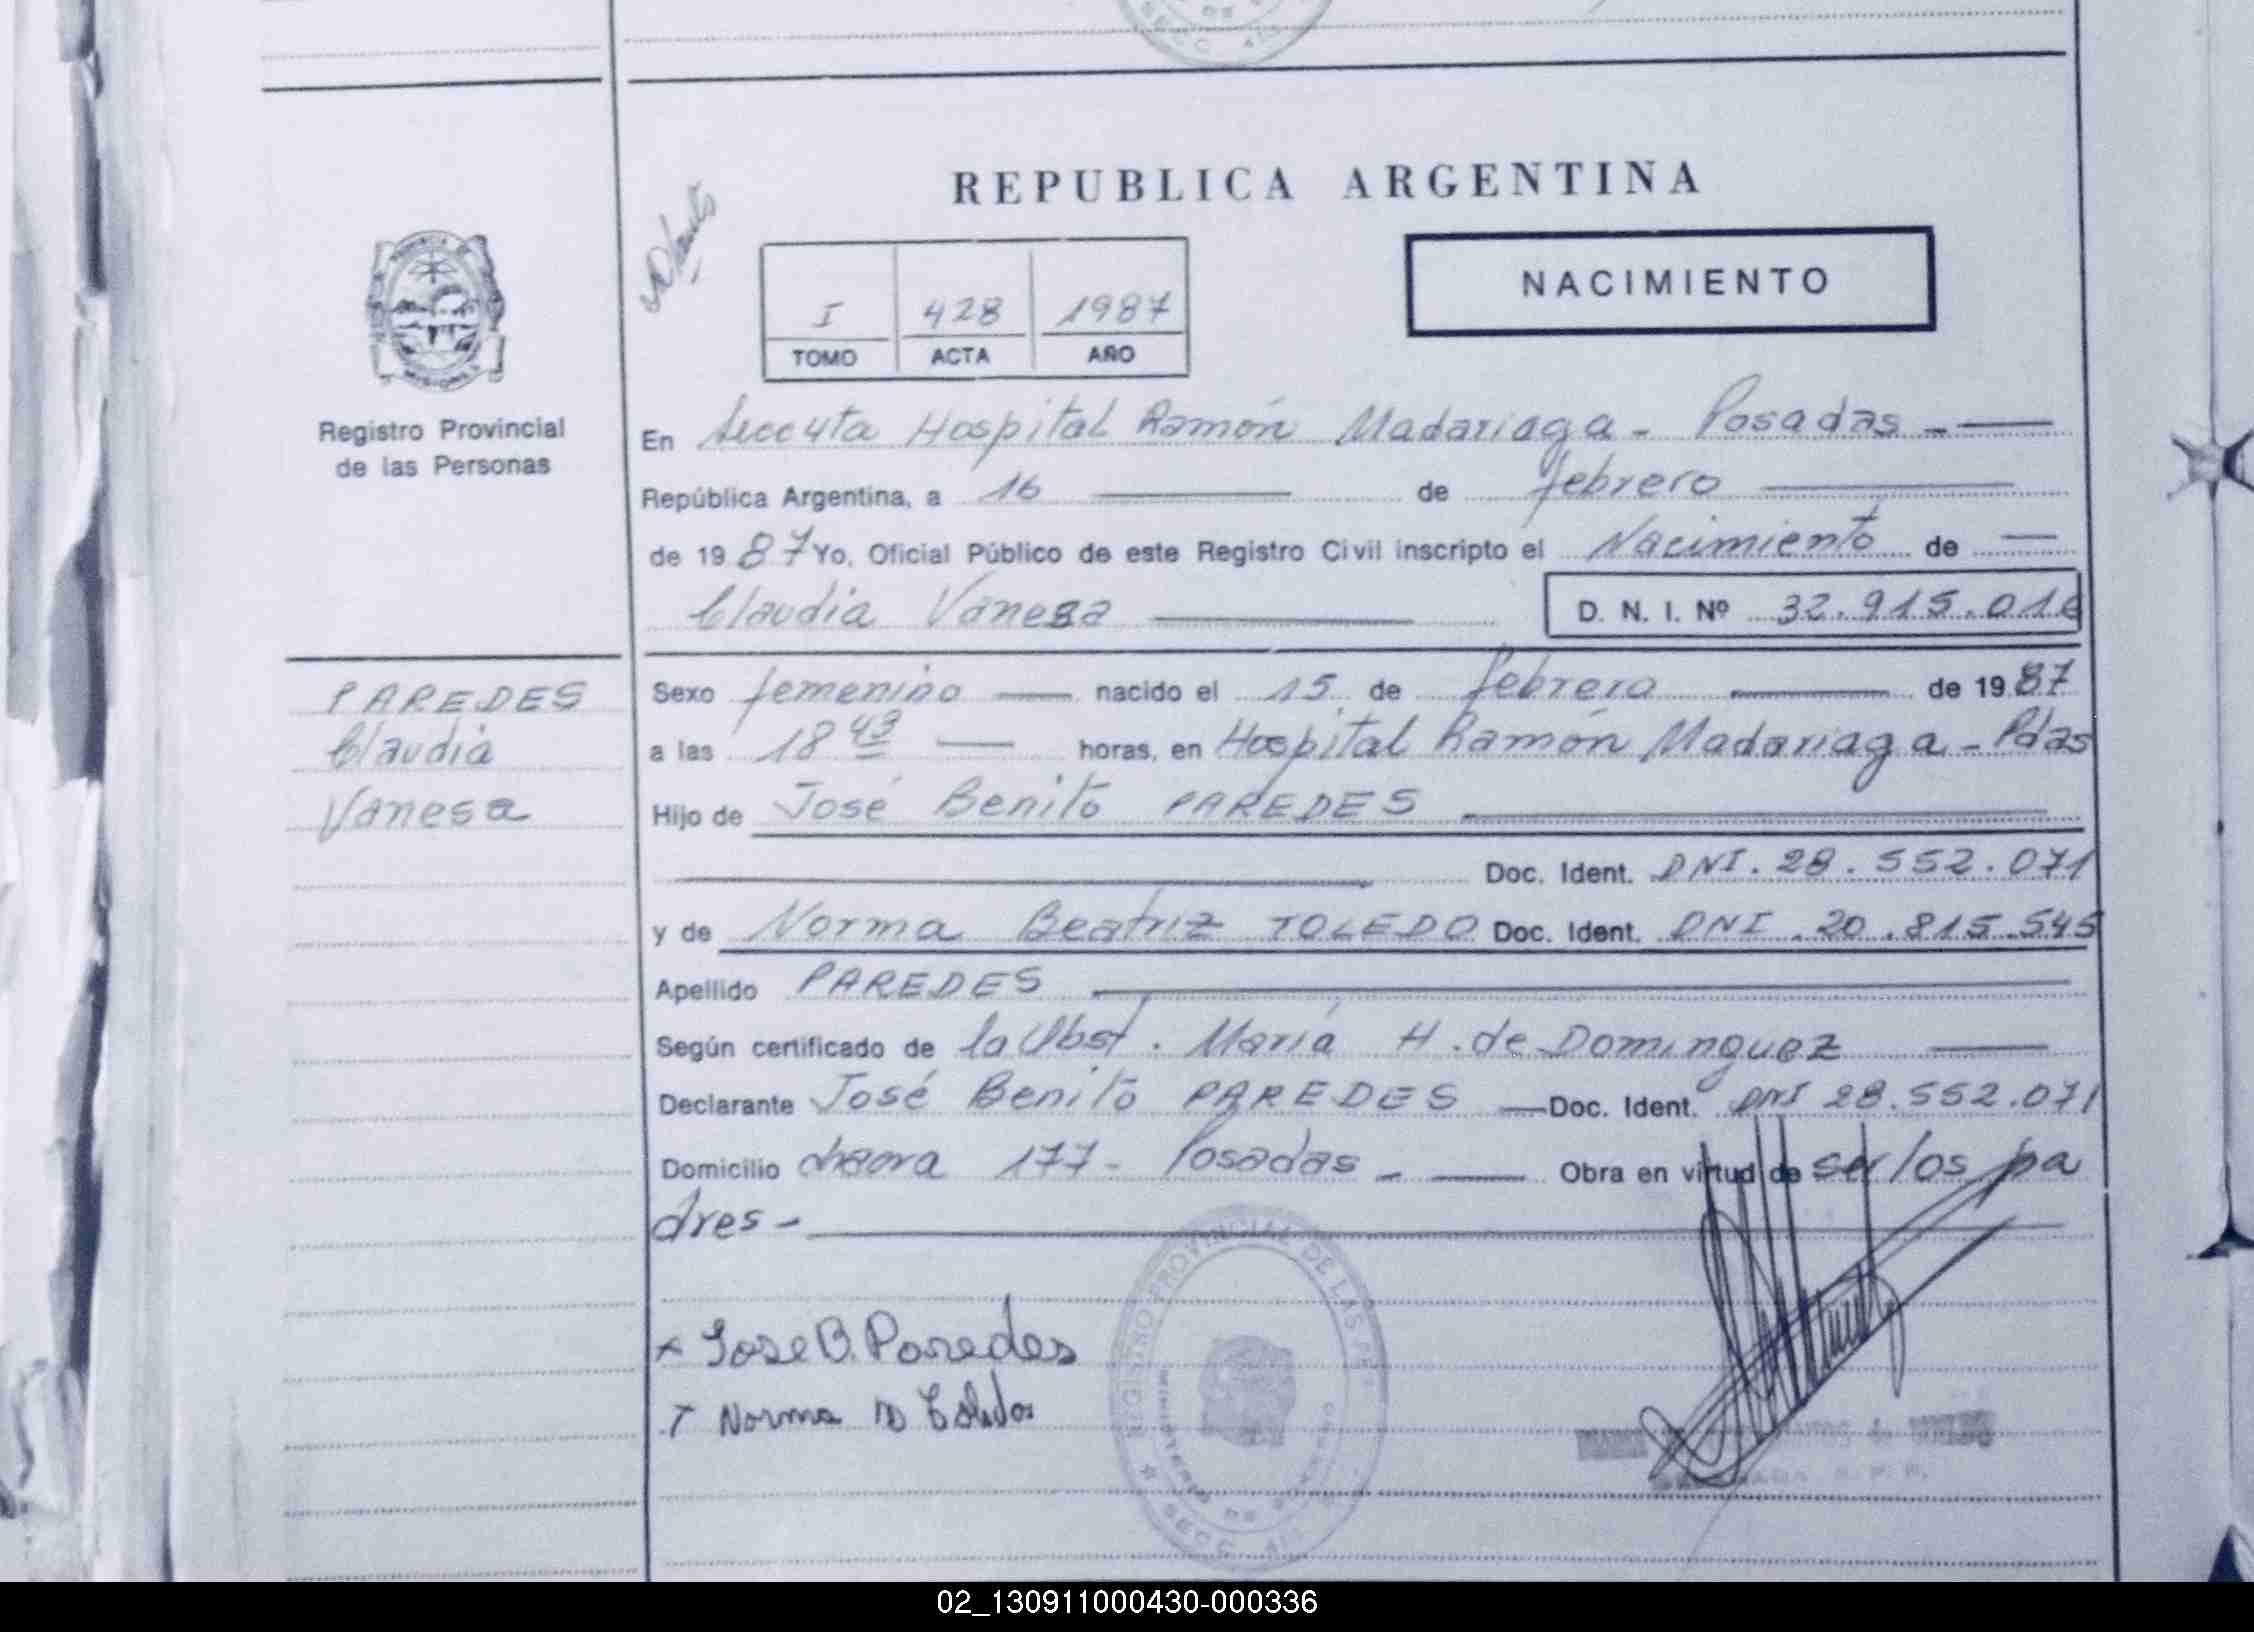 REPUBLICA ARGENTINA
NACIMIENTO
I 428 1987
TOMO ACTA AÑO
Registro Provincial
de las Personas
En Hospital Ramón Madariaga - Posadas -
República Argentina, a 16 de febrero
de 1987 Yo, Oficial Público de este Registro Civil inscripto el Nacimiento de
Claudia Vanesa D. N. I. Nº 32.915.016
PAREDES
Claudia
Vanesa
Sexo femenino nacido el 15 de febrero de 1987
a las 18 43 horas, en Hospital Ramón Madariaga - Pdas
Hijo de José Benito PAREDES
Doc. Ident. DNI. 28.552.071
y de Norma Beatriz TOLEDO Doc. Ident. DNI. 20.815.545
Apellido PAREDES
Según certificado de la Obst. María H. de Dominguez
Declarante José Benito PAREDES Doc. Ident. DNI 28.552.071
Domicilio chacra 177 - Posadas - Obra en virtud de ser los pa
dres -
Jose B. Paredes
Norma
REGISTRO PROVINCIAL DE LAS
MINISTERIO DE GOBIERNO
02_130911000430-000336